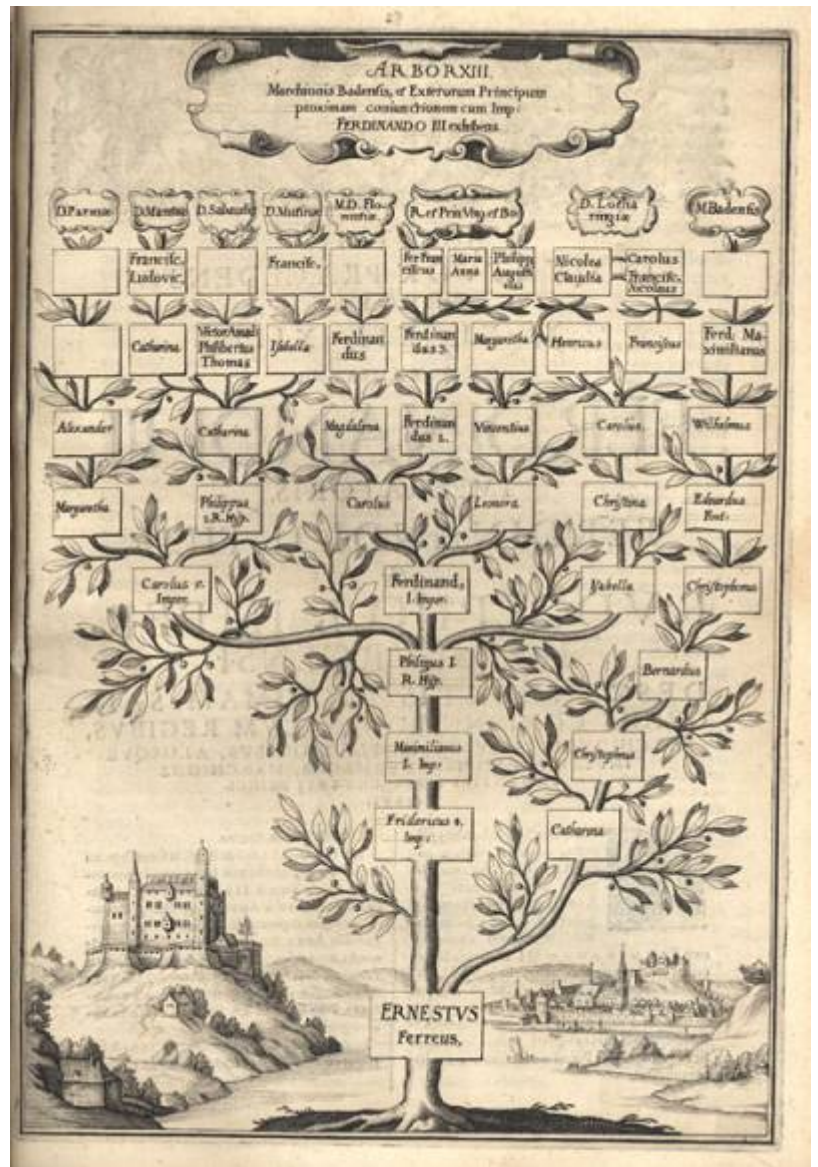 27
ARBOR XIII.
Marchionis Badensis, et Exterorum Principum
proximam coniunctionem cum Imp:
FERDINANDO III exhibens.
D. Parmæ
D. Mantuæ
D. Sabaudiæ
D. Mutinæ
M. D. Flo-
rentiæ
R. et Prin Ung et Bo.
D. Lotha
ringiæ
M. Badensis
Francisc.
Ludovic.
Francisc.
Fer Fran
ciscus
Maria
Anna
Philipp
Augus
Nicolea
Claudia
Carolus
Francisc.
Nicolaus
Catharina
Victor Amad:
Philibertus
Thomas
Isabella
Ferdinan
dus
Ferdinan
dus 3.
Margaretha
Henricus
Franciscus
Ferd: Ma-
ximilianus
Alexander
Catharina
Magdalena
Ferdinan
dus 2.
Vincentius
Carolus.
Wilhelmus
Margaretha
Philippus
2. R. Hisp.
Carolus
Leonora
Christina
Eduardus
Fort:
Carolus v.
Imper.
Ferdinand,
I. Imper.
Isabella
Christophorus
Philippus I.
R. Hisp.
Bernardus
Maximilianus
I. Imp:
Christophorus
Fridericus 4.
Imp:
Catharina
ERNESTVS
Ferreus,